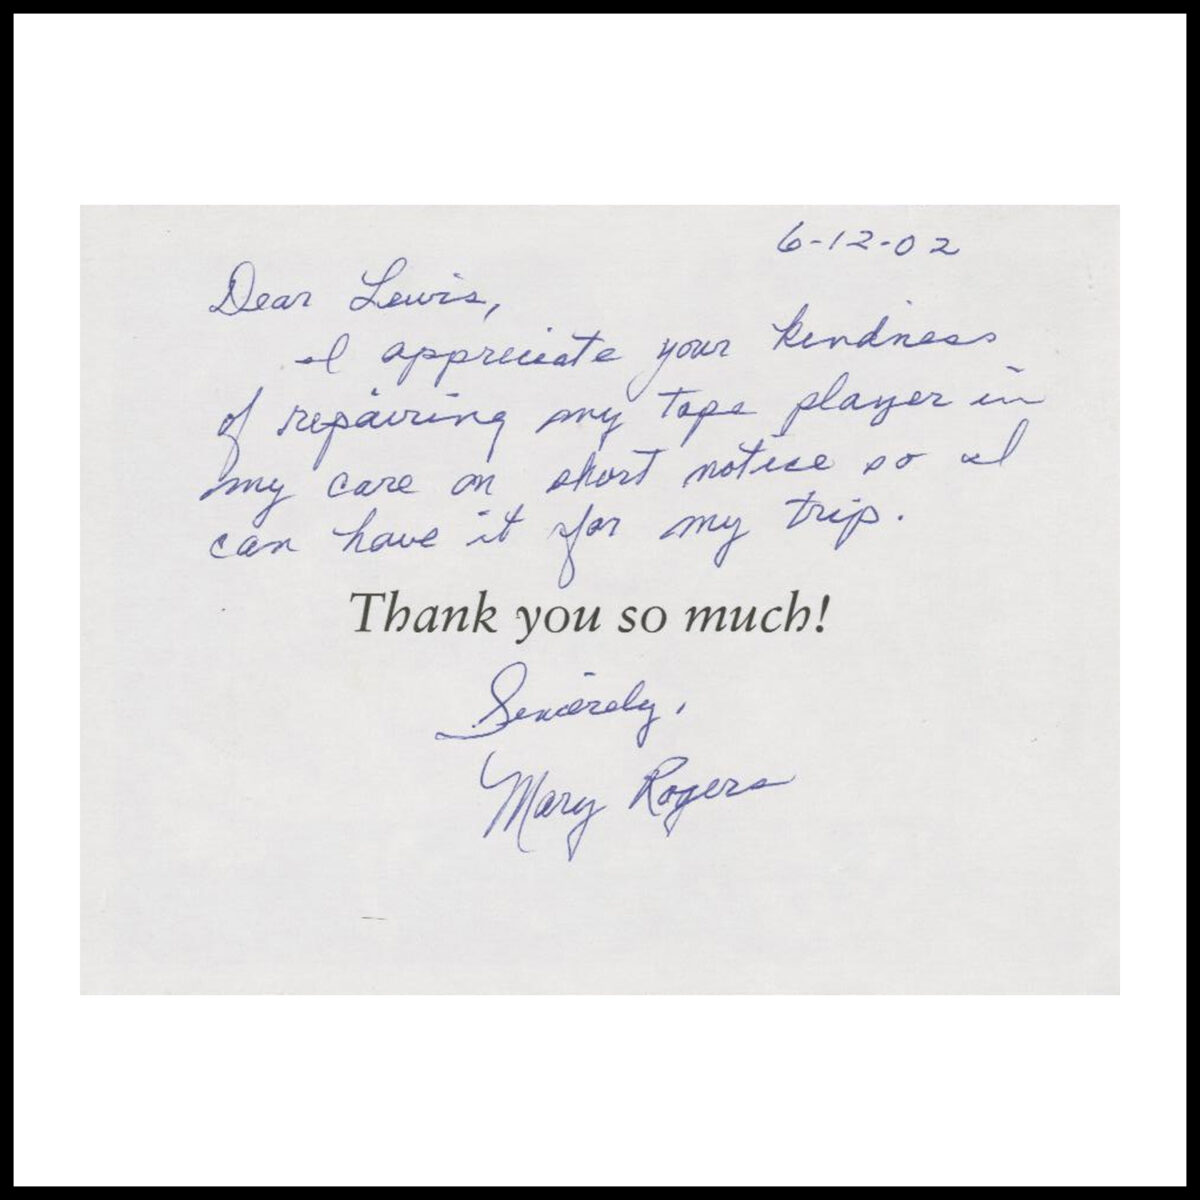 6-12-02
Dear Lewis,
I appreciate your kindness
of repairing my tape player in
my care on short notice so I
can have it for my trip.
Thank you so much!
Sincerely,
Mary Rogers